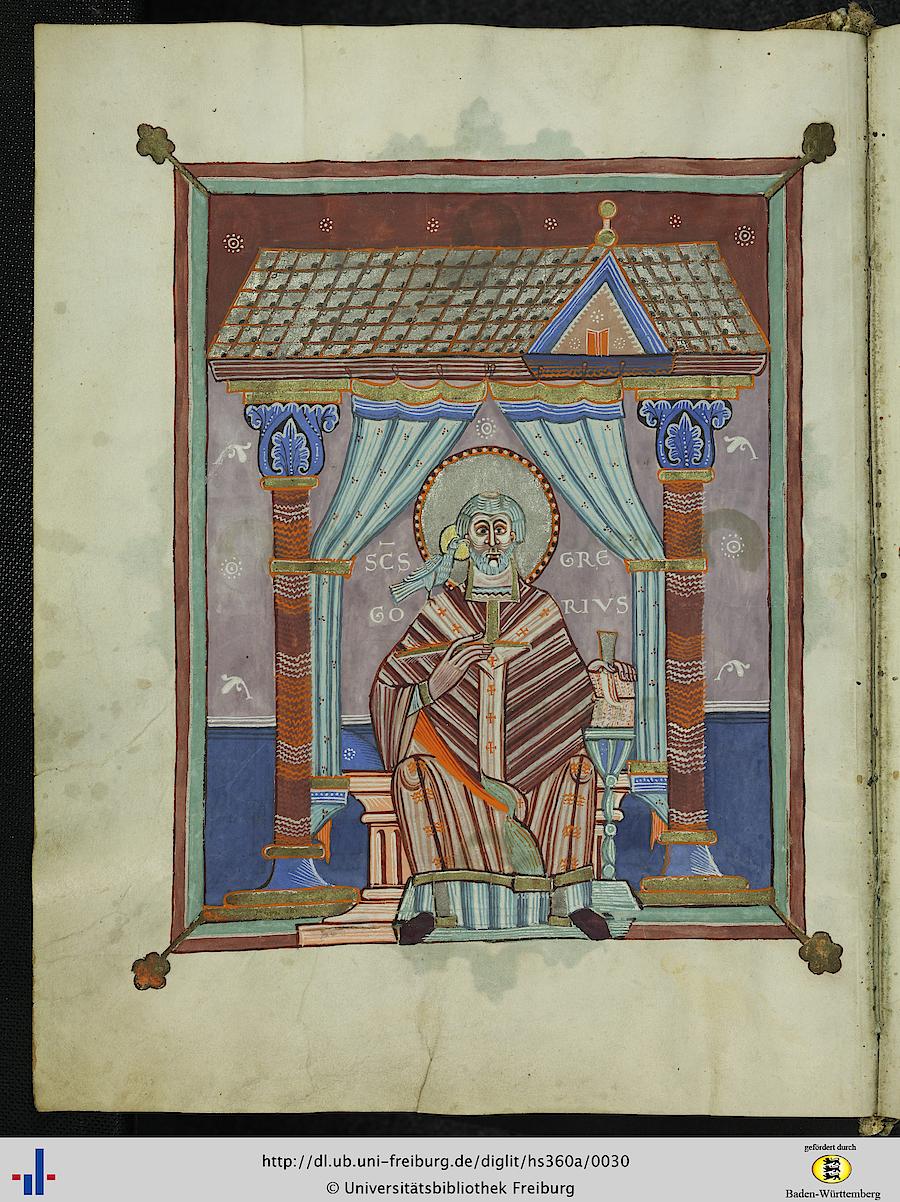 SC̄S GRE
GO RIVS
http://dl.ub.uni-freiburg.de/diglit/hs360a/0030
© Universitätsbibliothek Freiburg
gefördert durch
Baden-Württemberg